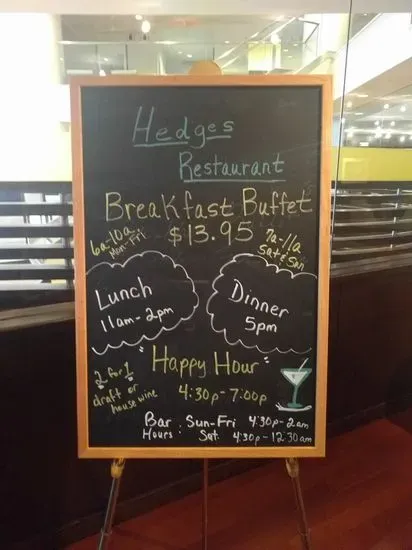 Hedges
Restaurant
Breakfast Buffet
6a-10a
Mon-Fri
$13.95
7a-11a
Sat & Sun
Lunch
11am-2pm
Dinner
5pm
"Happy Hour"
2 for 1
draft or
house wine
4:30p-7:00p
Bar Hours: Sun-Fri 4:30p-2am
Sat. 4:30p-12:30am